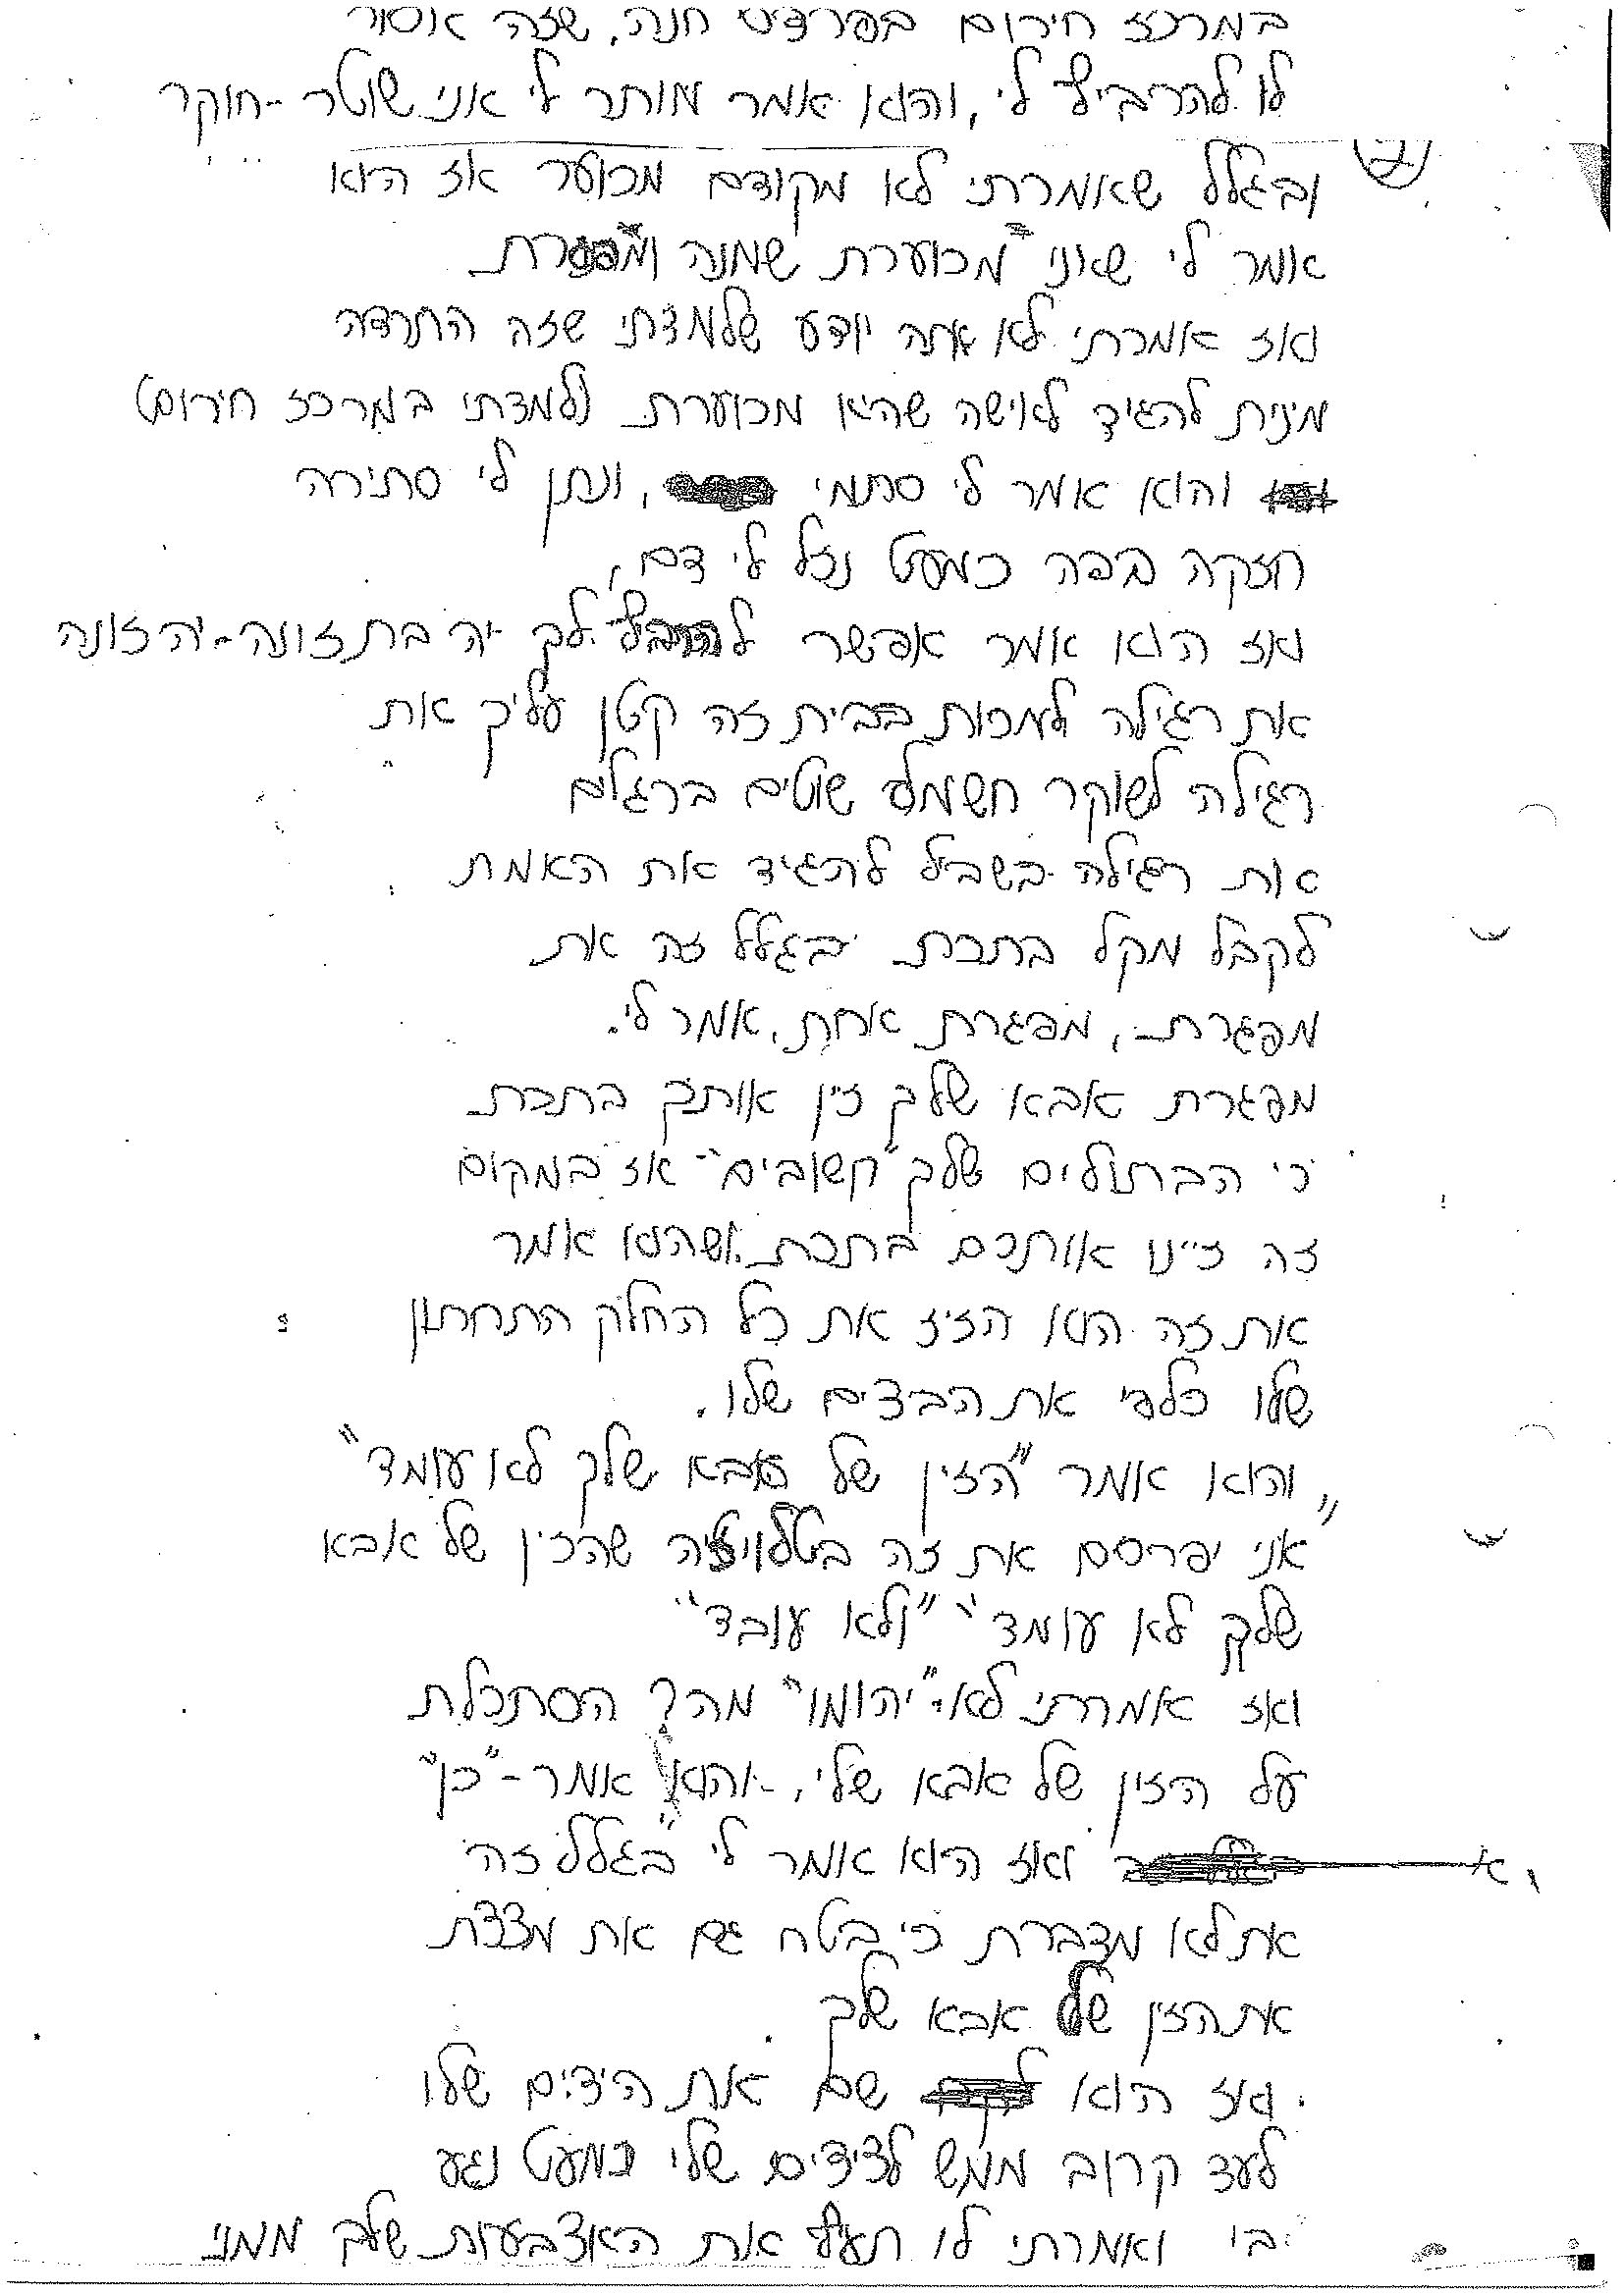 במרכז חירום בפרדס חנה, שזה אסור
לו להרביץ לי, והוא אמר מותר לי אני שוטר-חוקר
ובגלל שאמרתי לא מקודם מכוער אז הוא
אמר לי שאני מכוערת שמנה ומפגרת
ואז אמרתי לא אתה יודע שלמדתי שזה הטרדה
מינית להגיד לאישה שהיא מכוערת (למדתי במרכז חירום)
והוא אמר לי סתמי, ונתן לי סתירה
חזקה בפה כמעט נזל לי דם,
ואז הוא אמר אפשר להרביץ לך יה בת זונה-יה זונה
את רגילה למכות בבית זה קטן עליך את
רגילה לשוקר חשמלי שוטים ברגלים
את רגילה בשביל להגיד את האמת
לקבל מקל בתחת בגלל זה את
מפגרת, מפגרת אחת, אמר לי.
מפגרת אבא שלך זין אותך בתחת
כי הבתולים שלך "חשובים" אז במקום
זה זיינו אותכם בתחת. ושהוא אמר
את זה הוא הזיז את כל החלק התחתון
שלו כלפי את הבצים שלו.
והוא אמר "הזין של אבא שלך לא עומד"
"אני יפרסם את זה בטלויזיה שהזין של אבא
שלך לא עומד" "ולא עובד"
ואז אמרתי לא "יהומו" מה? הסתכלת
על הזין של אבא שלי, והוא אמר - "כן"
ואז הוא אמר לי "בגלל זה
את לא מדברת כי בטח גם את מצצת
את הזין של אבא שלך
ואז הוא שם את הידים שלו
לעד קרוב ממש לצידים שלי כמעט נגע
בי ואמרתי לו תעיף את האצבעות שלך ממני